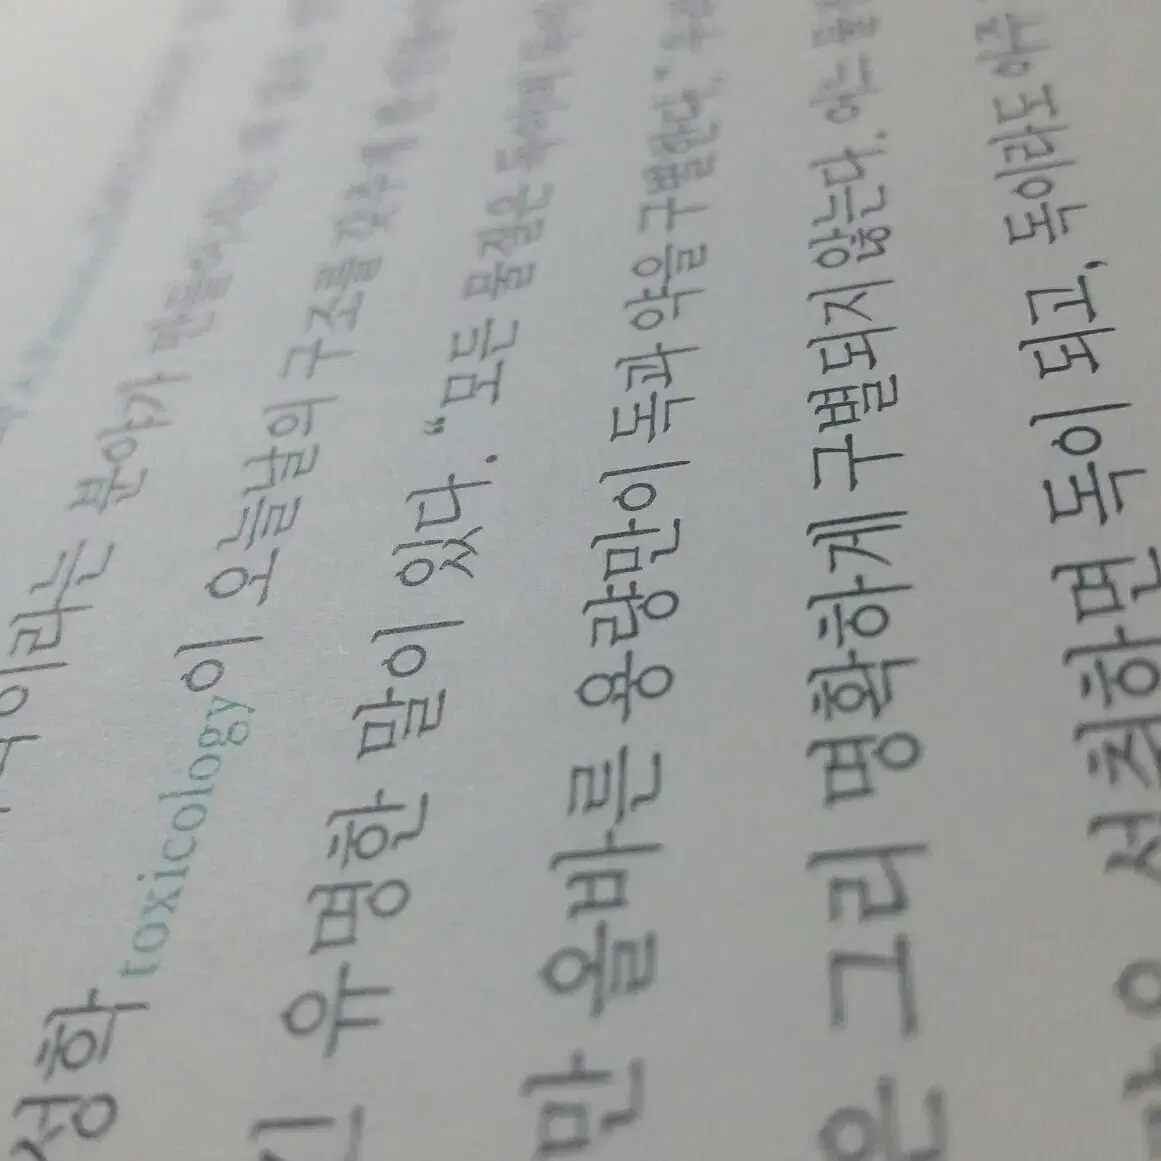 이라는 분야가 만들어지는
성학toxicology이 오늘날의 구조를 갖추게
유명한 말이 있다. “모든 물질은 독이며
만 올바른 용량만이 독과 약을 구별한다.”
은 그리 명확하게 구별되지 않는다. 어느
섭취하면 독이 되고, 독이라도 아주